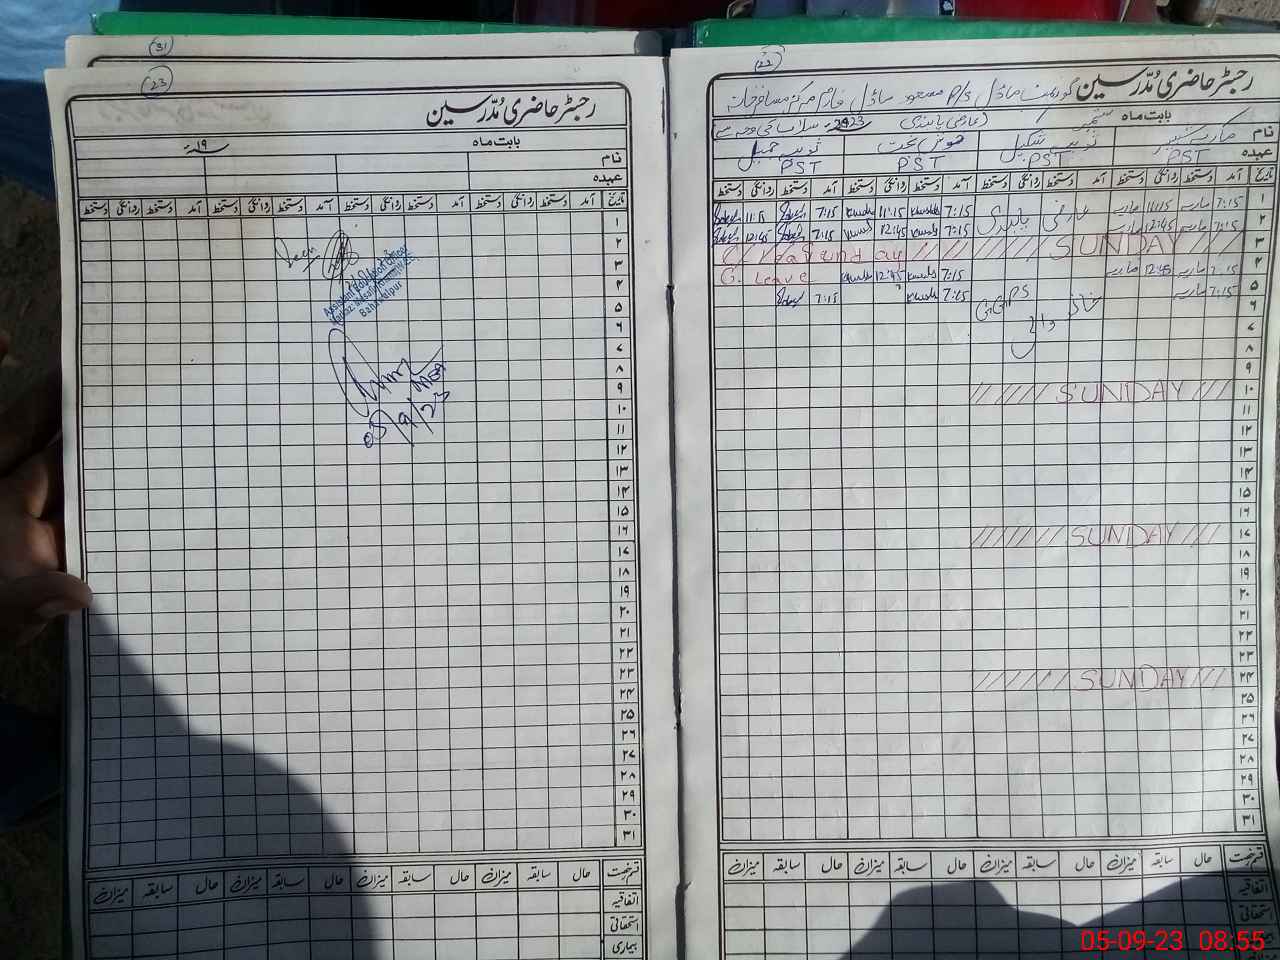 (31)
(23)
رجسٹر حاضری مُدّرسین
بابت ماہ ۱۹ء
نام
عہدہ
تاریخ آمد دستخط روانگی دستخط آمد دستخط روانگی دستخط آمد دستخط روانگی دستخط آمد دستخط روانگی دستخط
۱
۲
۳
۴
۵
۶
۷
۸
۹
۱۰
۱۱
۱۲
۱۳
۱۴
۱۵
۱۶
۱۷
۱۸
۱۹
۲۰
۲۱
۲۲
۲۳
۲۴
۲۵
۲۶
۲۷
۲۸
۲۹
۳۰
۳۱
Assistant Education Officer
Bahawalpur
AEO
05/9/23
قسم رخصت حال سابقہ میزان حال سابقہ میزان حال سابقہ میزان حال سابقہ میزان
اتفاقیہ
استحقاقی
بیماری
(22)
رجسٹر حاضری مُدّرسین
گورنمنٹ ماڈل P/S مسعود ماڈل فارم مرکز مسافر خانہ
بابت ماہ ستمبر 2023ء
نام
عہدہ PST PST PST PST
تاریخ آمد دستخط روانگی دستخط آمد دستخط روانگی دستخط آمد دستخط روانگی دستخط آمد دستخط روانگی دستخط
۱ 7:15 ماریہ 11:15 ماریہ عارضی پابندی 7:15 11:15 7:15 11:15
۲ 7:15 ماریہ 12:45 ماریہ 7:15 12:45 7:15 12:45
۳ SUNDAY
۴ 7:15 ماریہ 12:45 ماریہ 7:15 12:45 C. Leave
۵ 7:15 ماریہ 7:15 7:15
۶ PS
۷
۸
۹
۱۰ SUNDAY
۱۱
۱۲
۱۳
۱۴
۱۵
۱۶
۱۷ SUNDAY
۱۸
۱۹
۲۰
۲۱
۲۲
۲۳
۲۴ SUNDAY
۲۵
۲۶
۲۷
۲۸
۲۹
۳۰
۳۱
قسم رخصت حال سابقہ میزان حال سابقہ میزان حال سابقہ میزان حال سابقہ میزان
اتفاقیہ
استحقاقی
بیماری
05-09-23 08:55